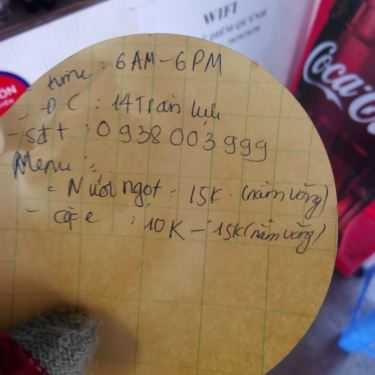 WIFI
DIỄM QUỲNH
Coca-Cola
time : 6AM - 6PM
- ĐC : 14 Trần
- Sđt : 0938003999
Menu :
- Nước ngọt - 15K (nằm võng)
- cafe : 10K - 15K (nằm võng)